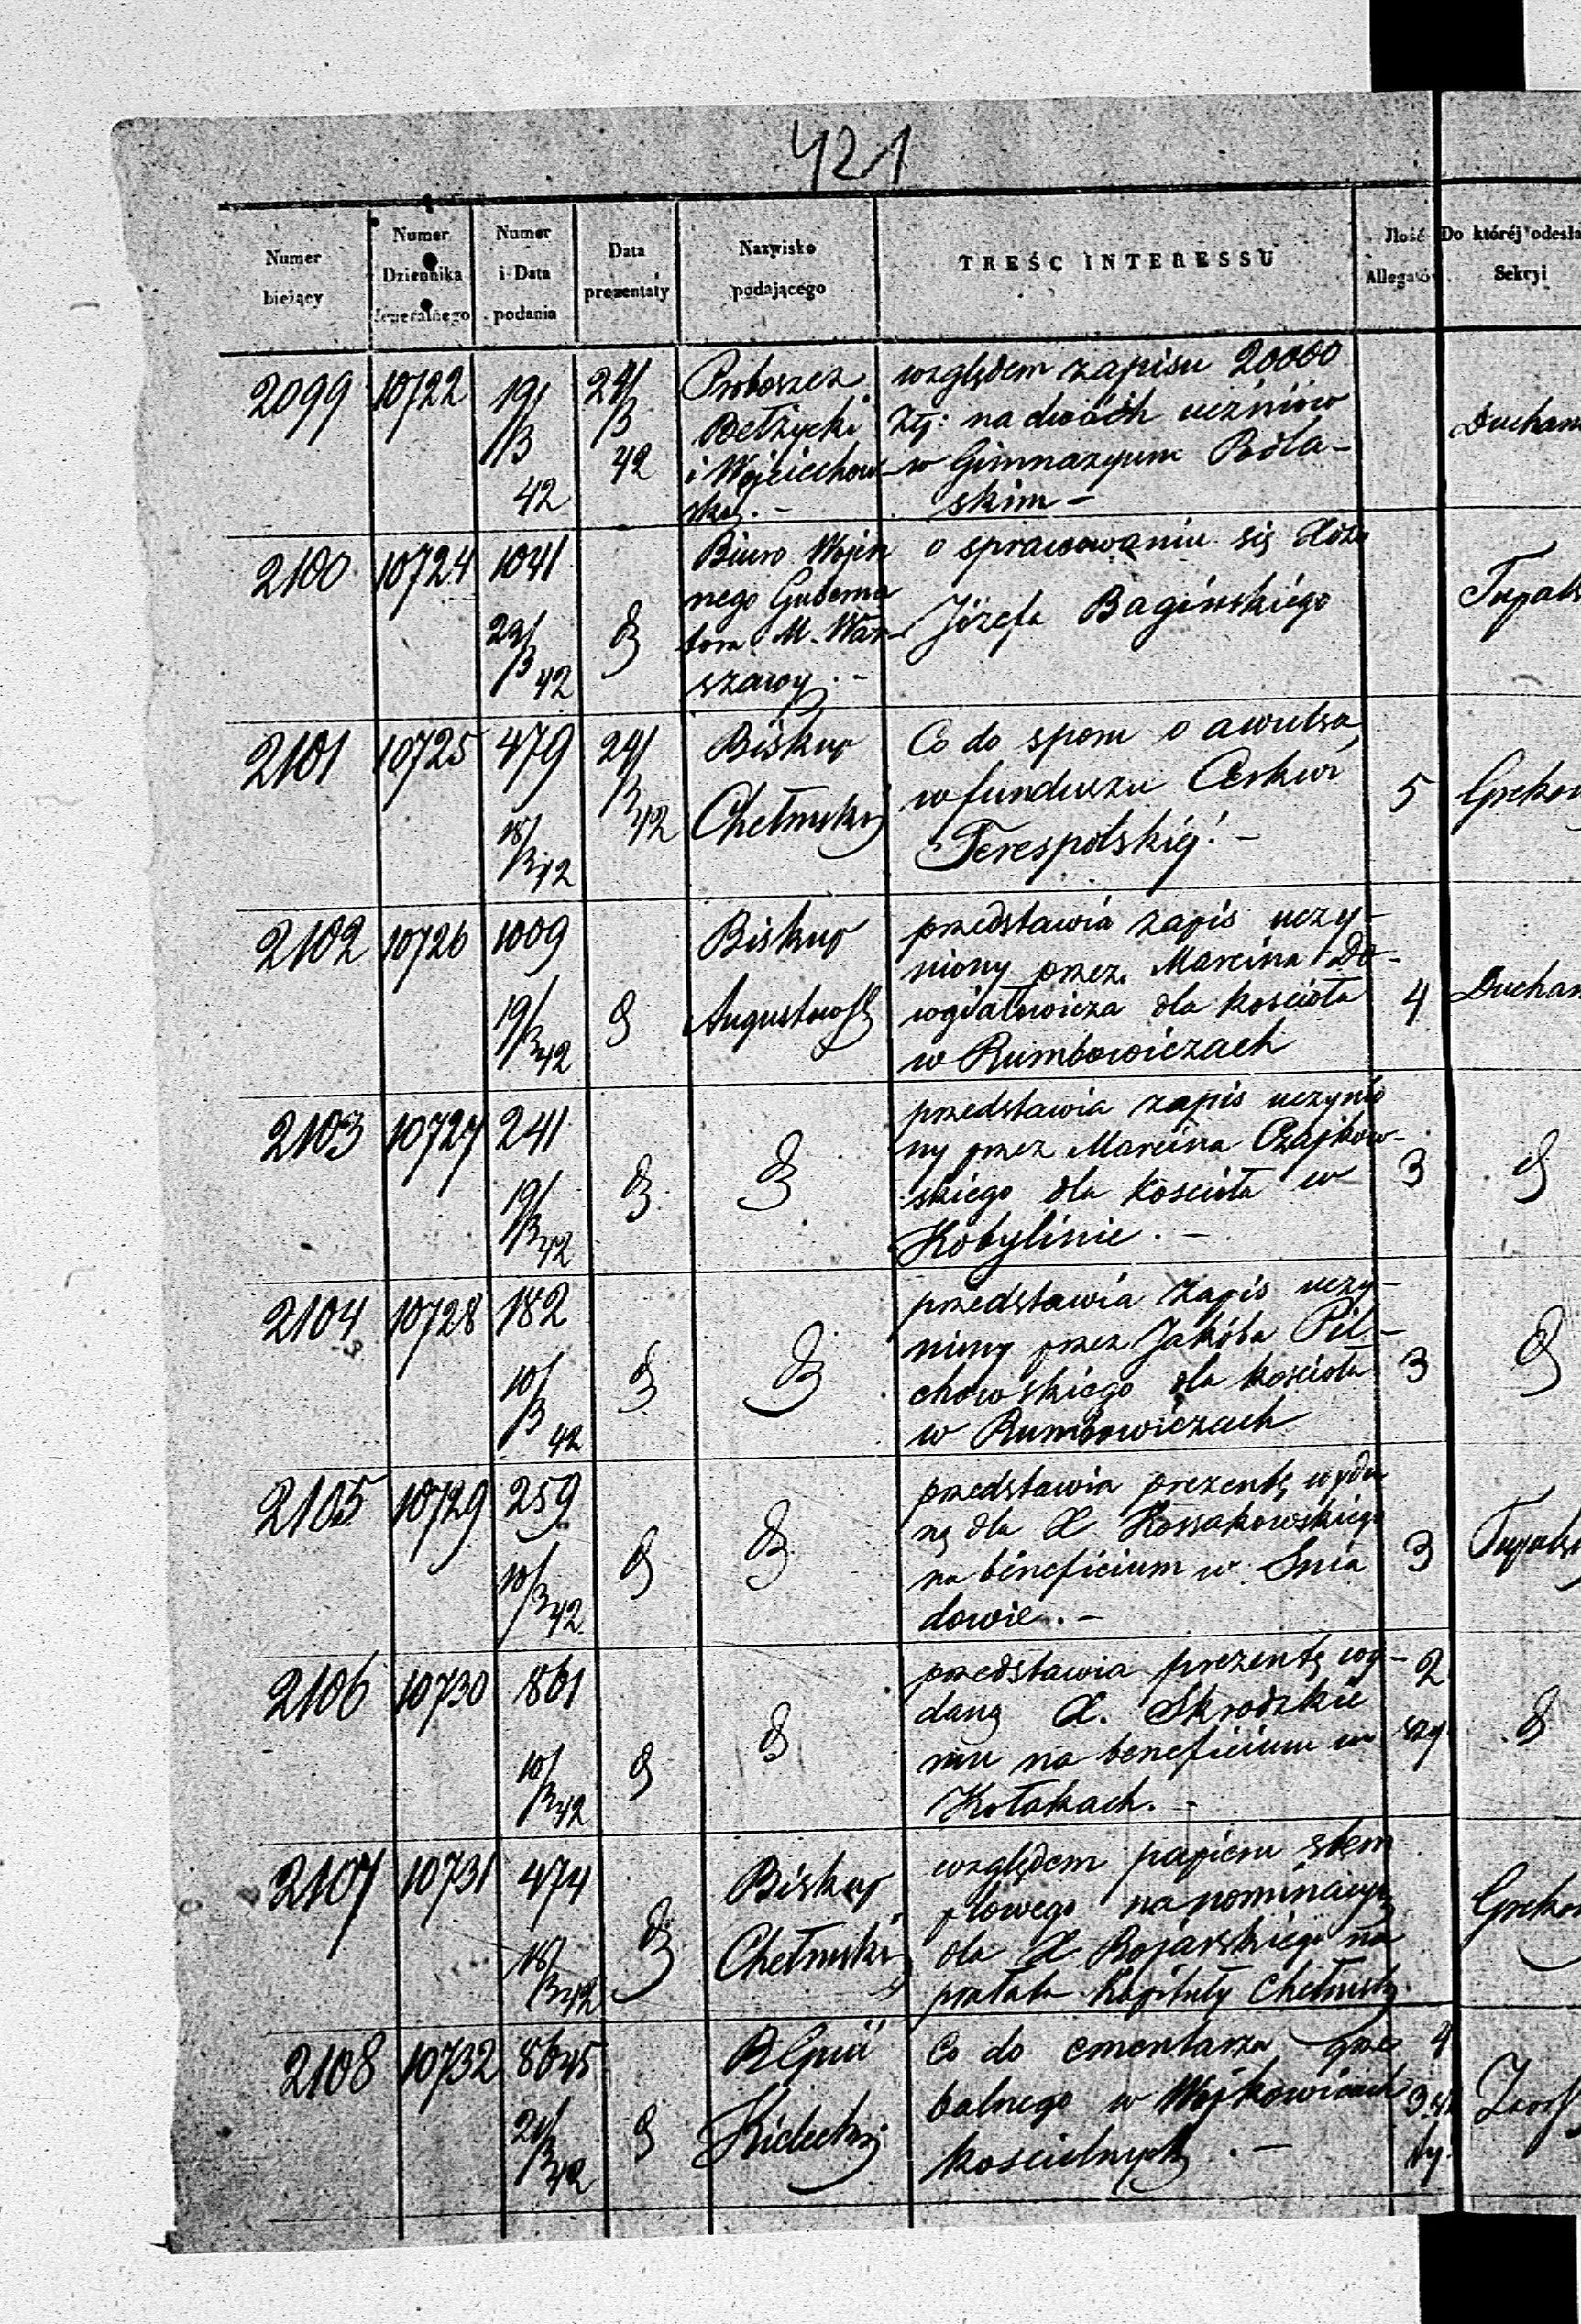 421
Numer bieżący
Numer Dziennika Jeneralnego
Numer i Data podania
Data prezentaty
Nazwisko podającego
TREŚC INTERESSU
Jlość Allegatów
Do któréj odesła
Sekryi
2099 10722 19/3 42 24/3 42 Proboszcz Bełżycki i Wojciechow-
względem zapisu 20000
Złj: na dwóch uczniów
w Gimnazyum Podla-
skim –
Duchan
2100 10724 1041 23/3 42
Biuro Wojen
nego Guberna
tora M. War
szawy. –
o sprawowaniu się
Józefa Bagińskiego
2101 10725 479 18/3 42 24/3 42
Biskup
Chełmski
Co do sporu o awulsa
w funduszu Cerkwi
Terespolskiéj. –
5
2102 10726 1009 19/3 42
Biskup
Augustows
przedstawia zapis uczy-
niony przez Marcina Do-
wgiałowicza dla kościoła
w Rumbowiczach
4 Duchan
2103 10727 241 19/3 42
przedstawia zapis uczynio
ny przez Marcina Czajkow-
skiego dla kościoła w
Kobylinie. –
3
2104 10728 182 10/3 42
przedstawia zapis uczy-
niony przez Jakóba Pil-
chowskiego dla kościoła
w Rumbowiczach
3
2105 10729 259 10/3 42
przedstawia prezentę wyda
ną dla X. Kossakowskiego
na beneficium w Snia
dowie. –
3
2106 10730 861 10/3 42
przedstawia prezentę wy-
daną X. Skrodzkie
mu na beneficium w
Kołakach. –
2
2107 10731 474 18/3 42
Biskup
Chełmski
względem papieru stem
plowego na nominacyą
dla X Bojarskiego na
prałata Kapituły Chełmsk
2108 10732 8645
Kielecki
Co do cmentarza grze
balnego w Wojkowicach
kościelnych. –
4